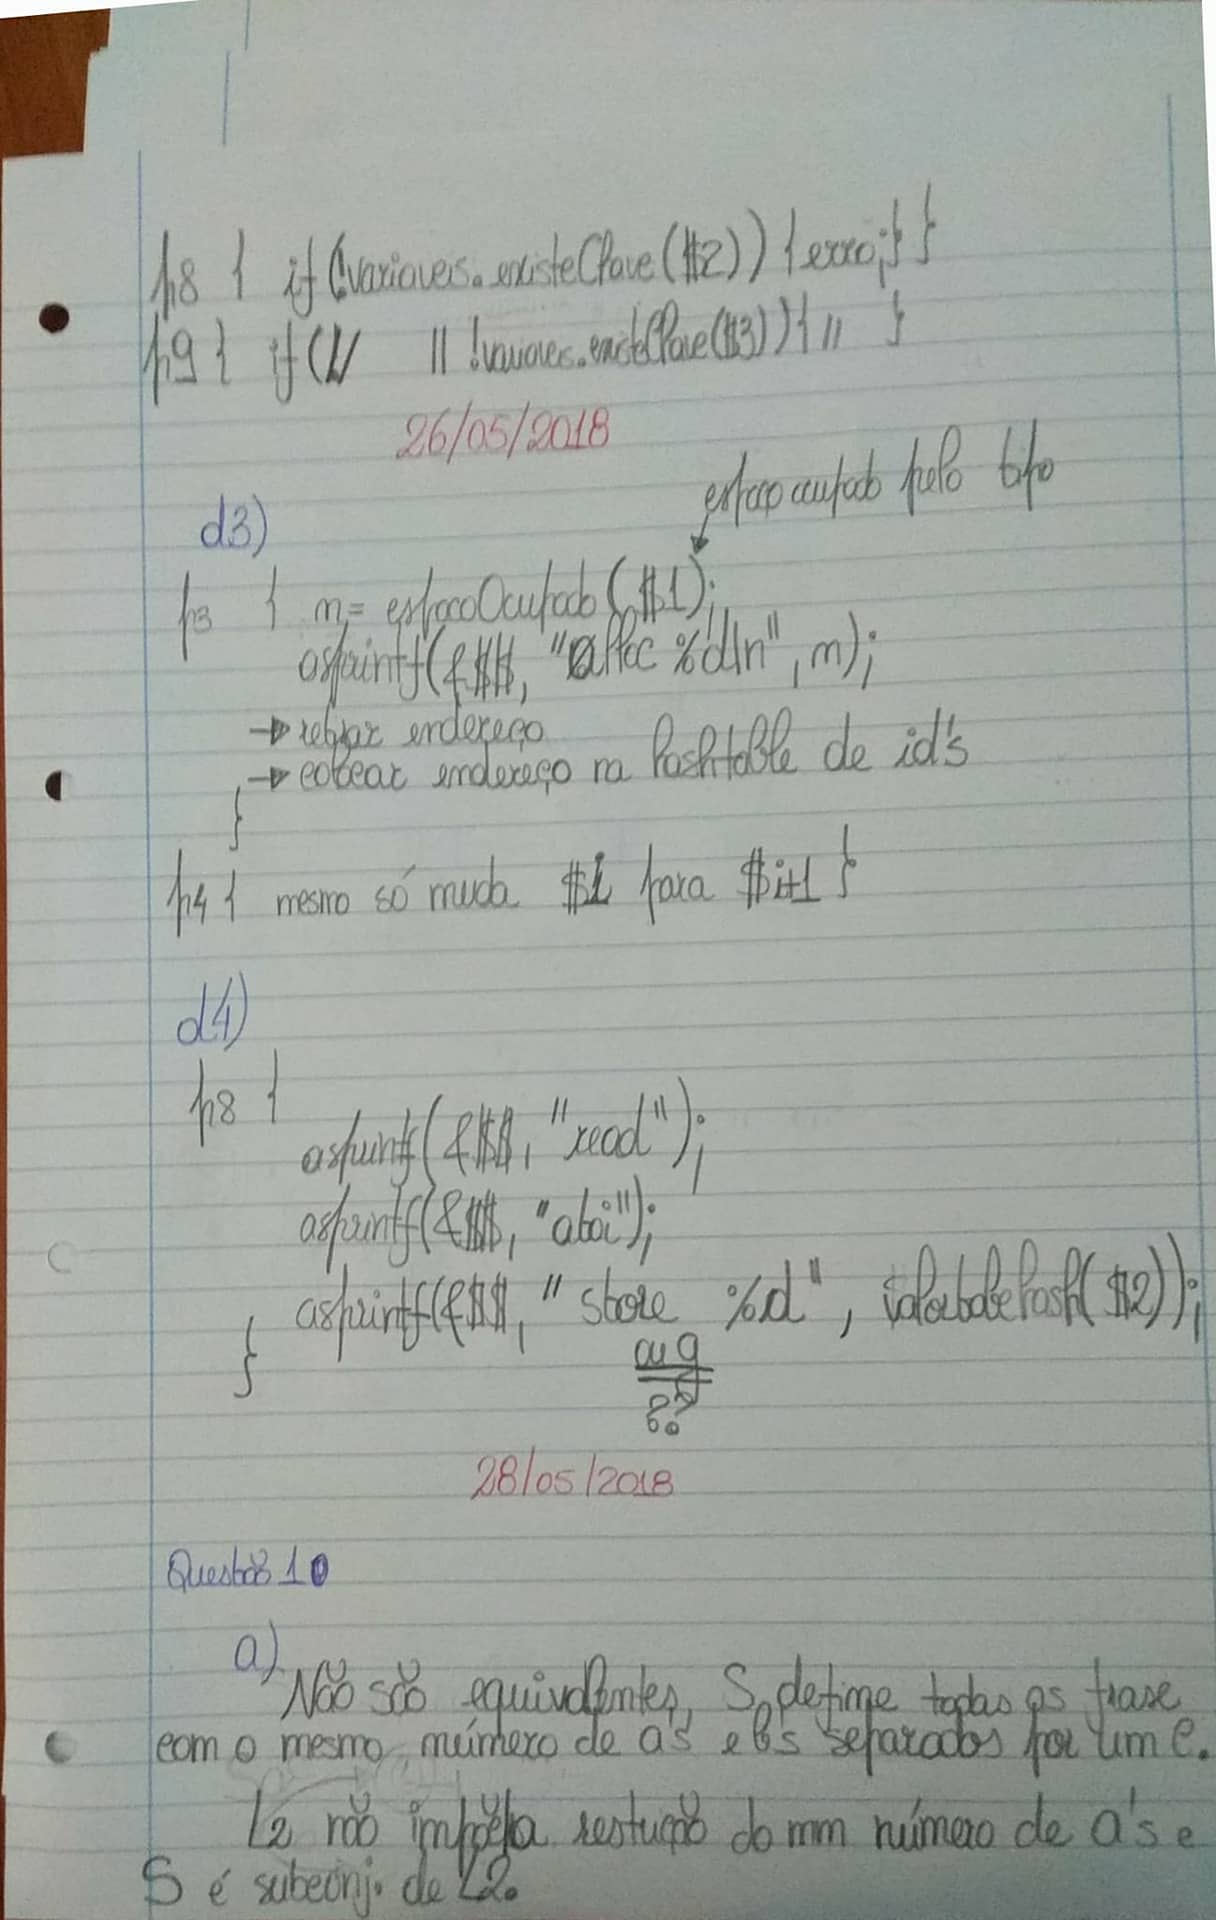 p8 { if (!variaveis.existeChave($2)) {erro;} }
p9 { if (" || !variaveis.existeChave($3)) { " }
26/05/2018
espaço ocupado pelo tipo
d3)
p3 { m = espacoOcupado($1);
asprintf(&$$, "alloc %d\n", m);
→ retirar endereço
→ colocar endereço na hashtable de id's
}
p4 { mesmo só muda $1 para $i+1 }
d4)
p8 {
asprintf(&$$, "read");
asprintf(&$$, "atoi");
asprintf(&$$, "store %d", valortabelahash($2));
}
ou g
??
28/05/2018
Questão 10
a)
Não são equivalentes, S define todas as frase
com o mesmo número de a's e b's separados por um c.
L2 não impõe a restrução do mm número de a's e
S é subconj. de L2.